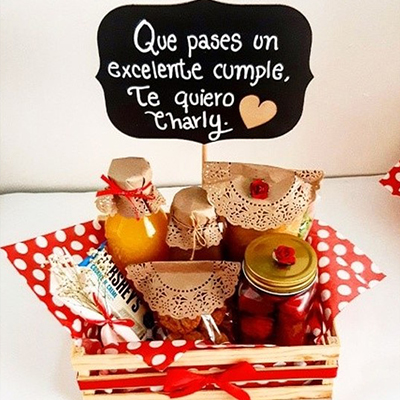 Que pases un
excelente cumple,
Te quiero
Charly.
HERSHEY'S